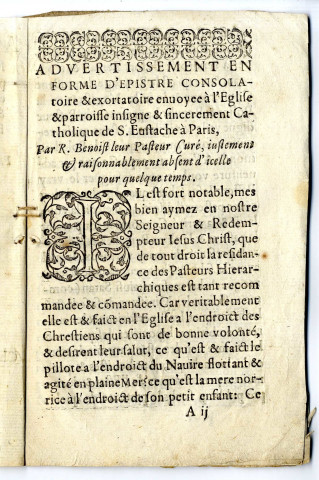 ADVERTISSEMENT EN
FORME D'EPISTRE CONSOLA
toire & exortatoire enuoyee à l'Eglise
& parroisse insigne & sincerement Ca-
tholique de S. Eustache à Paris,
Par R. Benoist leur Pasteur Curé, iustement
& raisonnablement absent d'icelle
pour quelque temps.
IL est fort notable, mes
bien aymez en nostre
Seigneur & Redem-
pteur Iesus Christ, que
de tout droit la residan-
ce des Pasteurs Hierar-
chiques est tant recom
mandee & cõmandee. Car veritablement
elle est & faict en l'Eglise a l'endroict des
Chrestiens qui sont de bonne volonté,
& desirent leur salut, ce qu'est & faict le
pillote a l'endroict du Nauire flottant &
agité en plaine Mer: ce qu'est la mere nor-
rice à l'endroict de son petit enfant: Ce
A ij